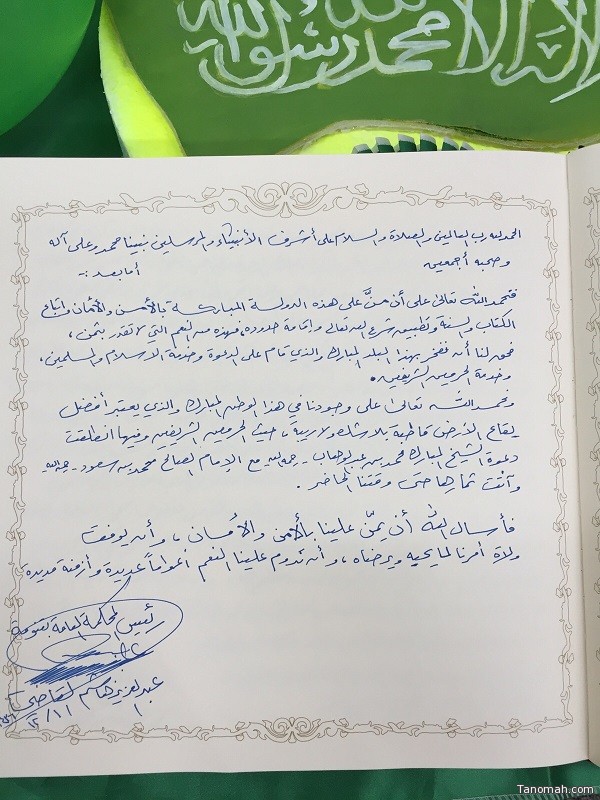 لا إله إلا الله محمد رسول الله
الحمد لله رب العالمين والصلاة والسلام على أشرف الأنبياء والمرسلين نبينا محمد وعلى آله
وصحبه أجمعين
أما بعد :-
فنحمد الله تعالى على أن منَّ على هذه الدولة المباركة بالأمن والأمان واتباع
الكتاب والسنة وتطبيق شرع الله تعالى وإقامة حدوده، فهذه من النعم التي لا تقدر بثمن،
فحق لنا أن نفخر بهذا البلد المبارك والذي قام على الدعوة وخدمة الإسلام والمسلمين،
وخدمة الحرمين الشريفين.
ونحمد الله تعالى على وجودنا في هذا الوطن المبارك والذي يعتبر أفضل
بقاع الأرض قاطبة بلا شك ولا ريبة، حيث الحرمين الشريفين وفيها انطلقت
دعوة الشيخ المبارك محمد بن عبدالوهاب - رحمه الله مع الإمام الصالح محمد بن سعود - رحمه الله
وآتت ثمارها حتى وقتنا الحاضر.
فأسال الله أن يمنّ علينا بالأمن والأمان، وأن يوفق
ولاة أمرنا لما يحبه ويرضاه، وأن تدوم علينا النعم أعواماً عديدة وأزمنة مديدة
رئيس المحكمة العامة بتنومة
عبدالعزيز هاشم القاضي
Tanomah.com